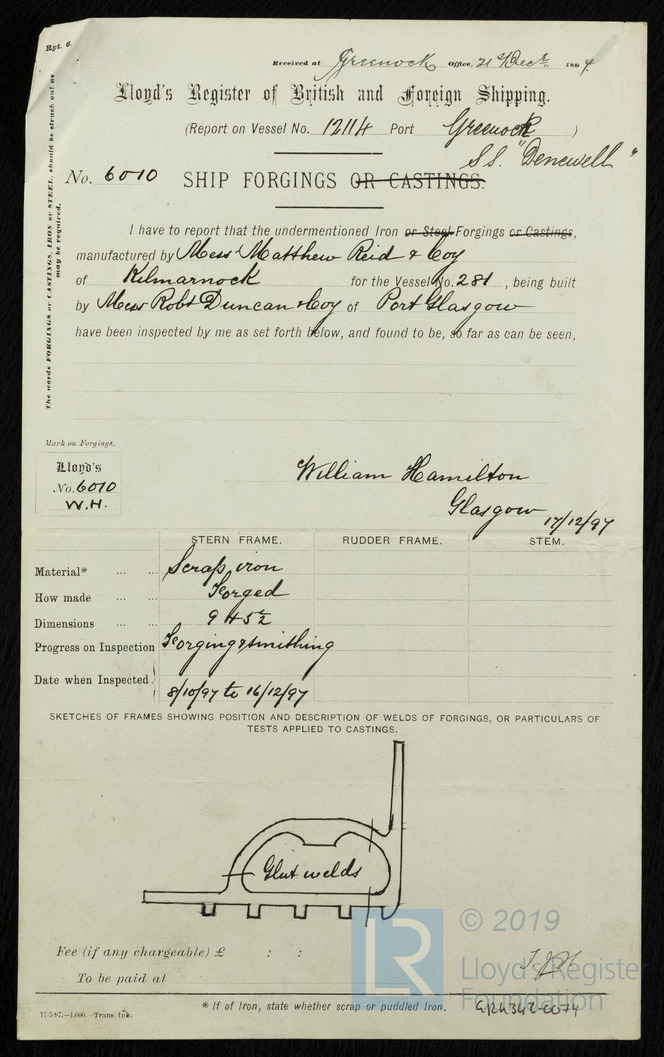 Rpt. 6.
Received at Greenock Office, 21 Decr. 1897.
Lloyd's Register of British and Foreign Shipping.
(Report on Vessel No. 12114 Port Greenock )
S.S. "Denewell"
No. 6010 SHIP FORGINGS OR CASTINGS.
The words FORGINGS or CASTINGS, IRON or STEEL, should be struck out as
may be required.
I have to report that the undermentioned Iron or Steel Forgings or Castings,
manufactured by Messrs Matthew Reid & Coy
of Kilmarnock for the Vessel No. 281 , being built
by Messrs Robt Duncan & Coy of Port Glasgow
have been inspected by me as set forth below, and found to be, so far as can be seen,
Mark on Forgings.
Lloyd's
No. 6010
W.H.
William Hamilton
Glasgow 17/12/97
STERN FRAME. RUDDER FRAME. STEM.
Material* ... ... Scrap iron
How made ... ... Forged
Dimensions ... ... 9 + 5½
Progress on Inspection Forging & smithing
Date when Inspected 8/10/97 to 16/12/97
SKETCHES OF FRAMES SHOWING POSITION AND DESCRIPTION OF WELDS OF FORGINGS, OR PARTICULARS OF
TESTS APPLIED TO CASTINGS.
Glut welds
Fee (if any chargeable) £ : :
To be paid at
* If of Iron, state whether scrap or puddled Iron.
17-5-97.—1,000.—Trans. Ink.
LR
© 2019
Lloyd's Register
Foundation